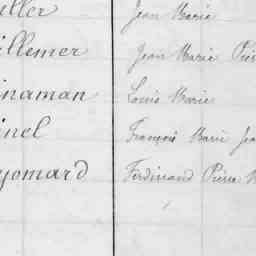 ller Jean Marie
illemer Jean Marie
inaman Louis Marie
inel François Marie
yomard Ferdinand Pierre